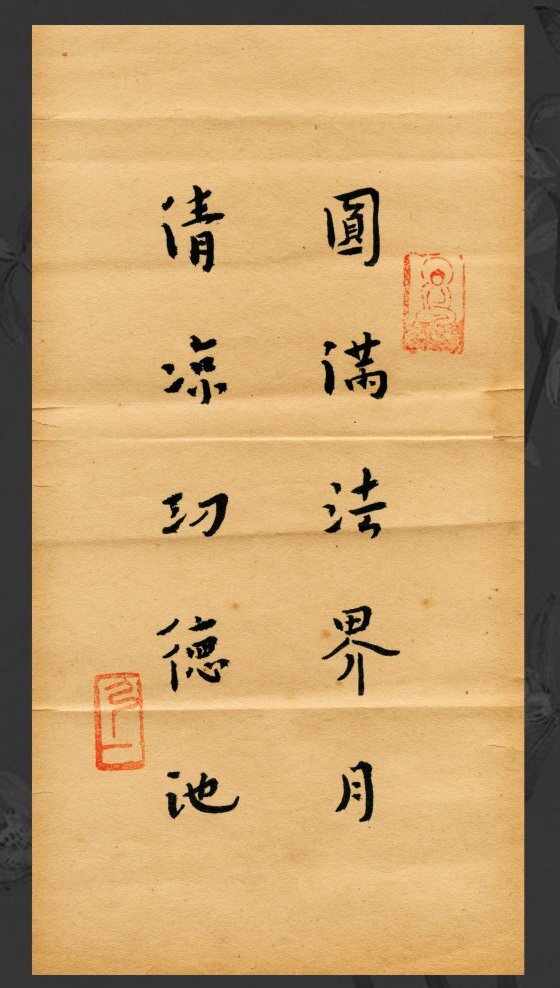 圓滿法界月
清涼功德池
弘一